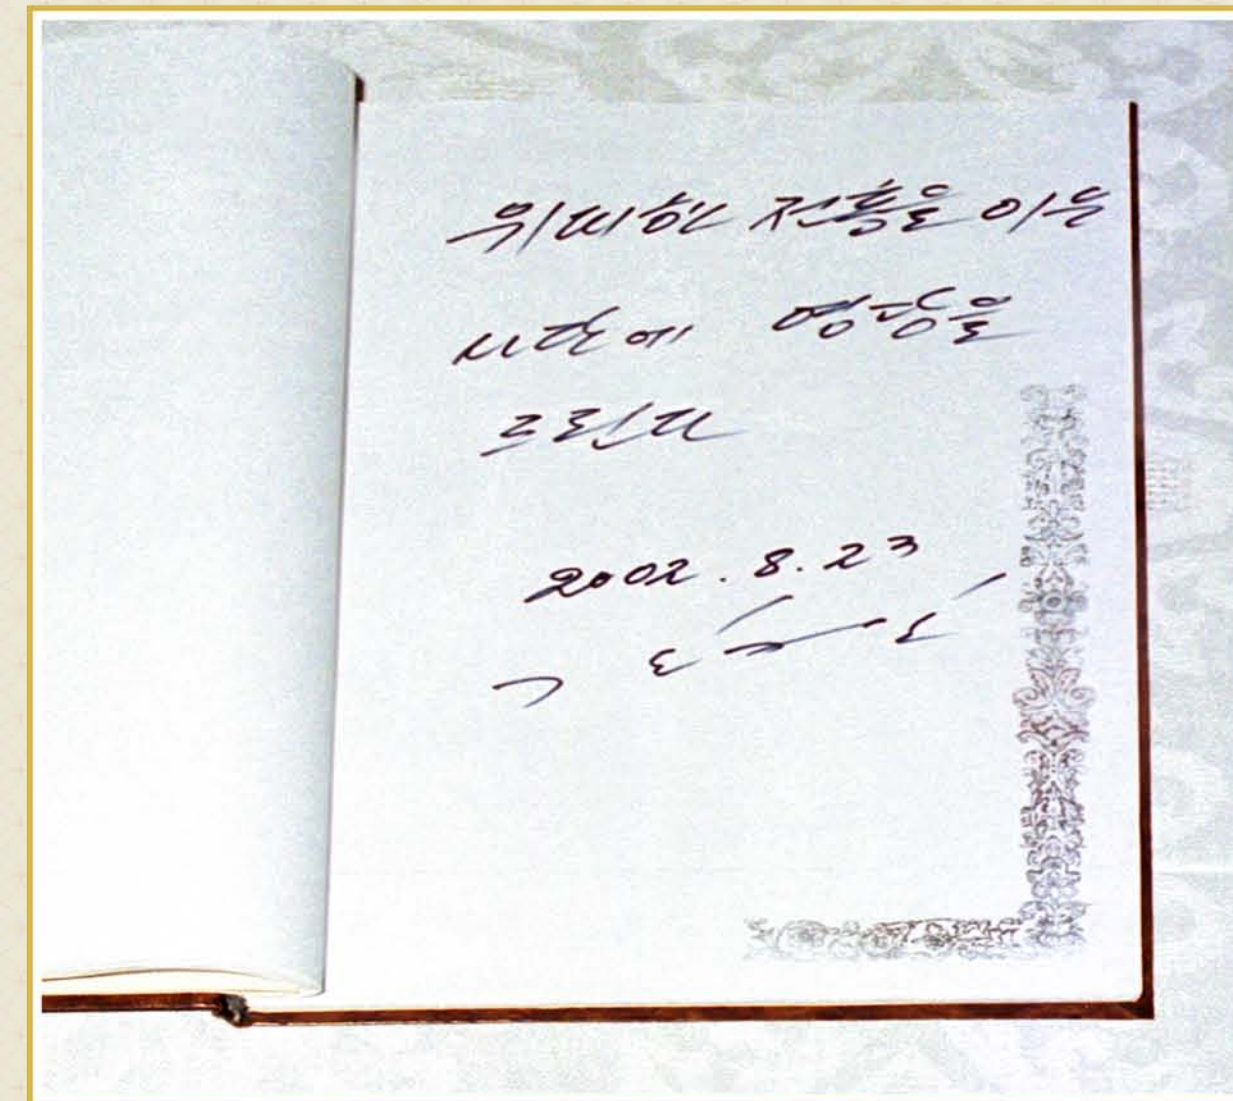 위대한 전통을
사단에 영광을
드린다
2002. 8. 23
김정일